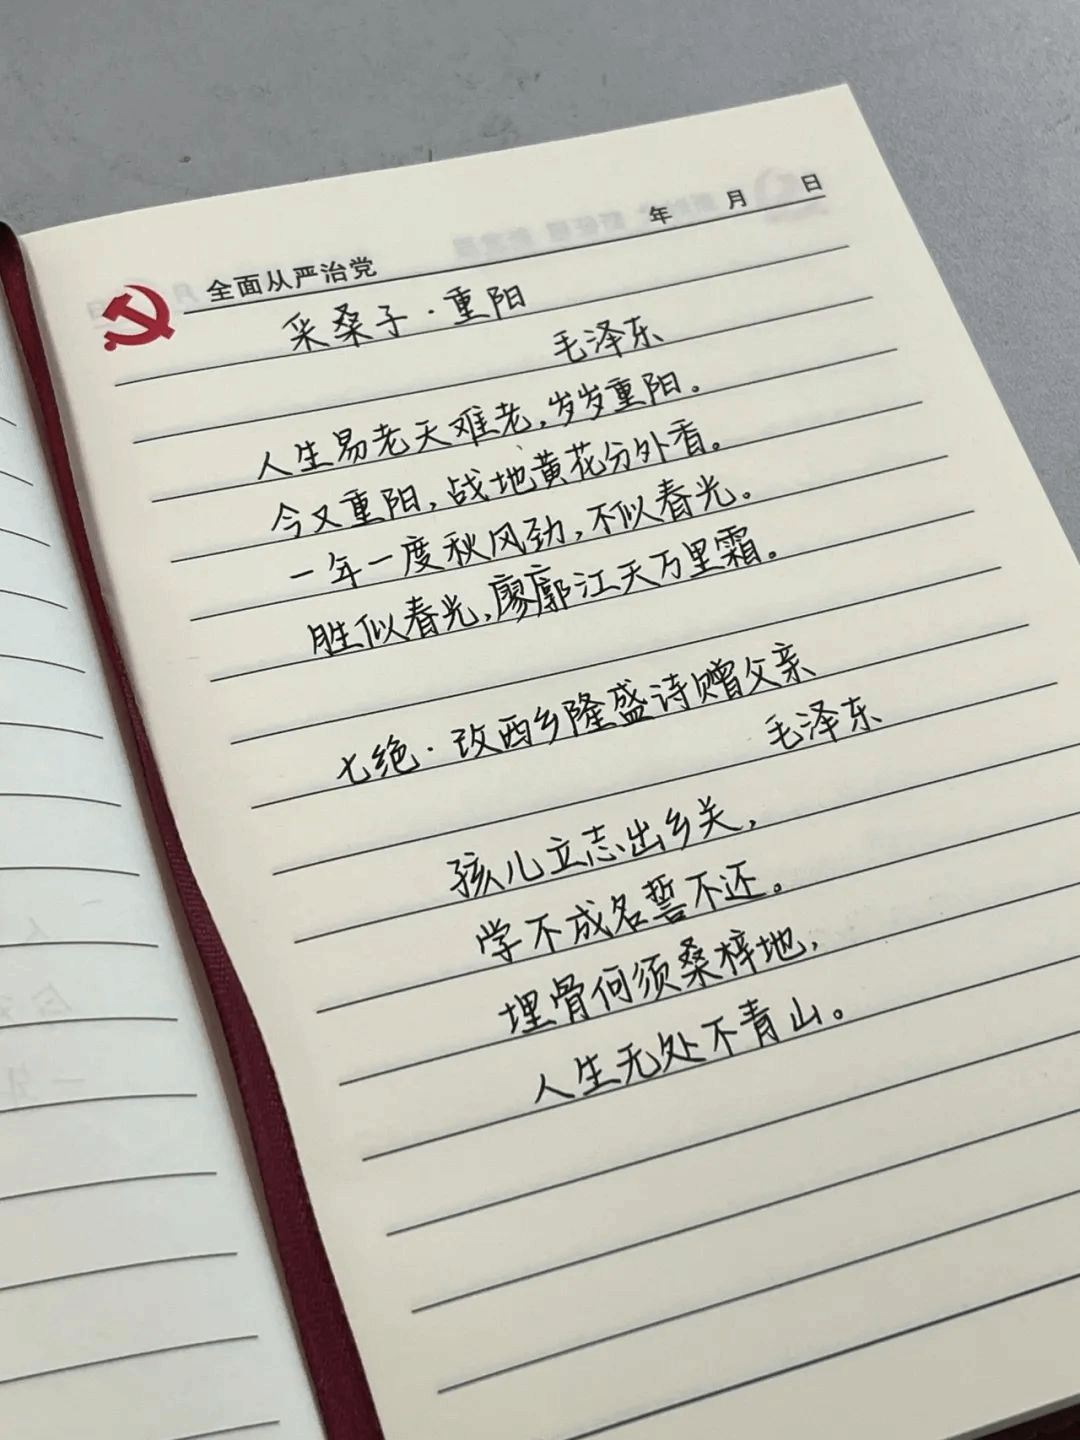 年 月 日
全面从严治党
采桑子·重阳
毛泽东
人生易老天难老,岁岁重阳。
今又重阳,战地黄花分外香。
一年一度秋风劲,不似春光。
胜似春光,廖廓江天万里霜。
七绝·改西乡隆盛诗赠父亲
毛泽东
孩儿立志出乡关,
学不成名誓不还。
埋骨何须桑梓地,
人生无处不青山。